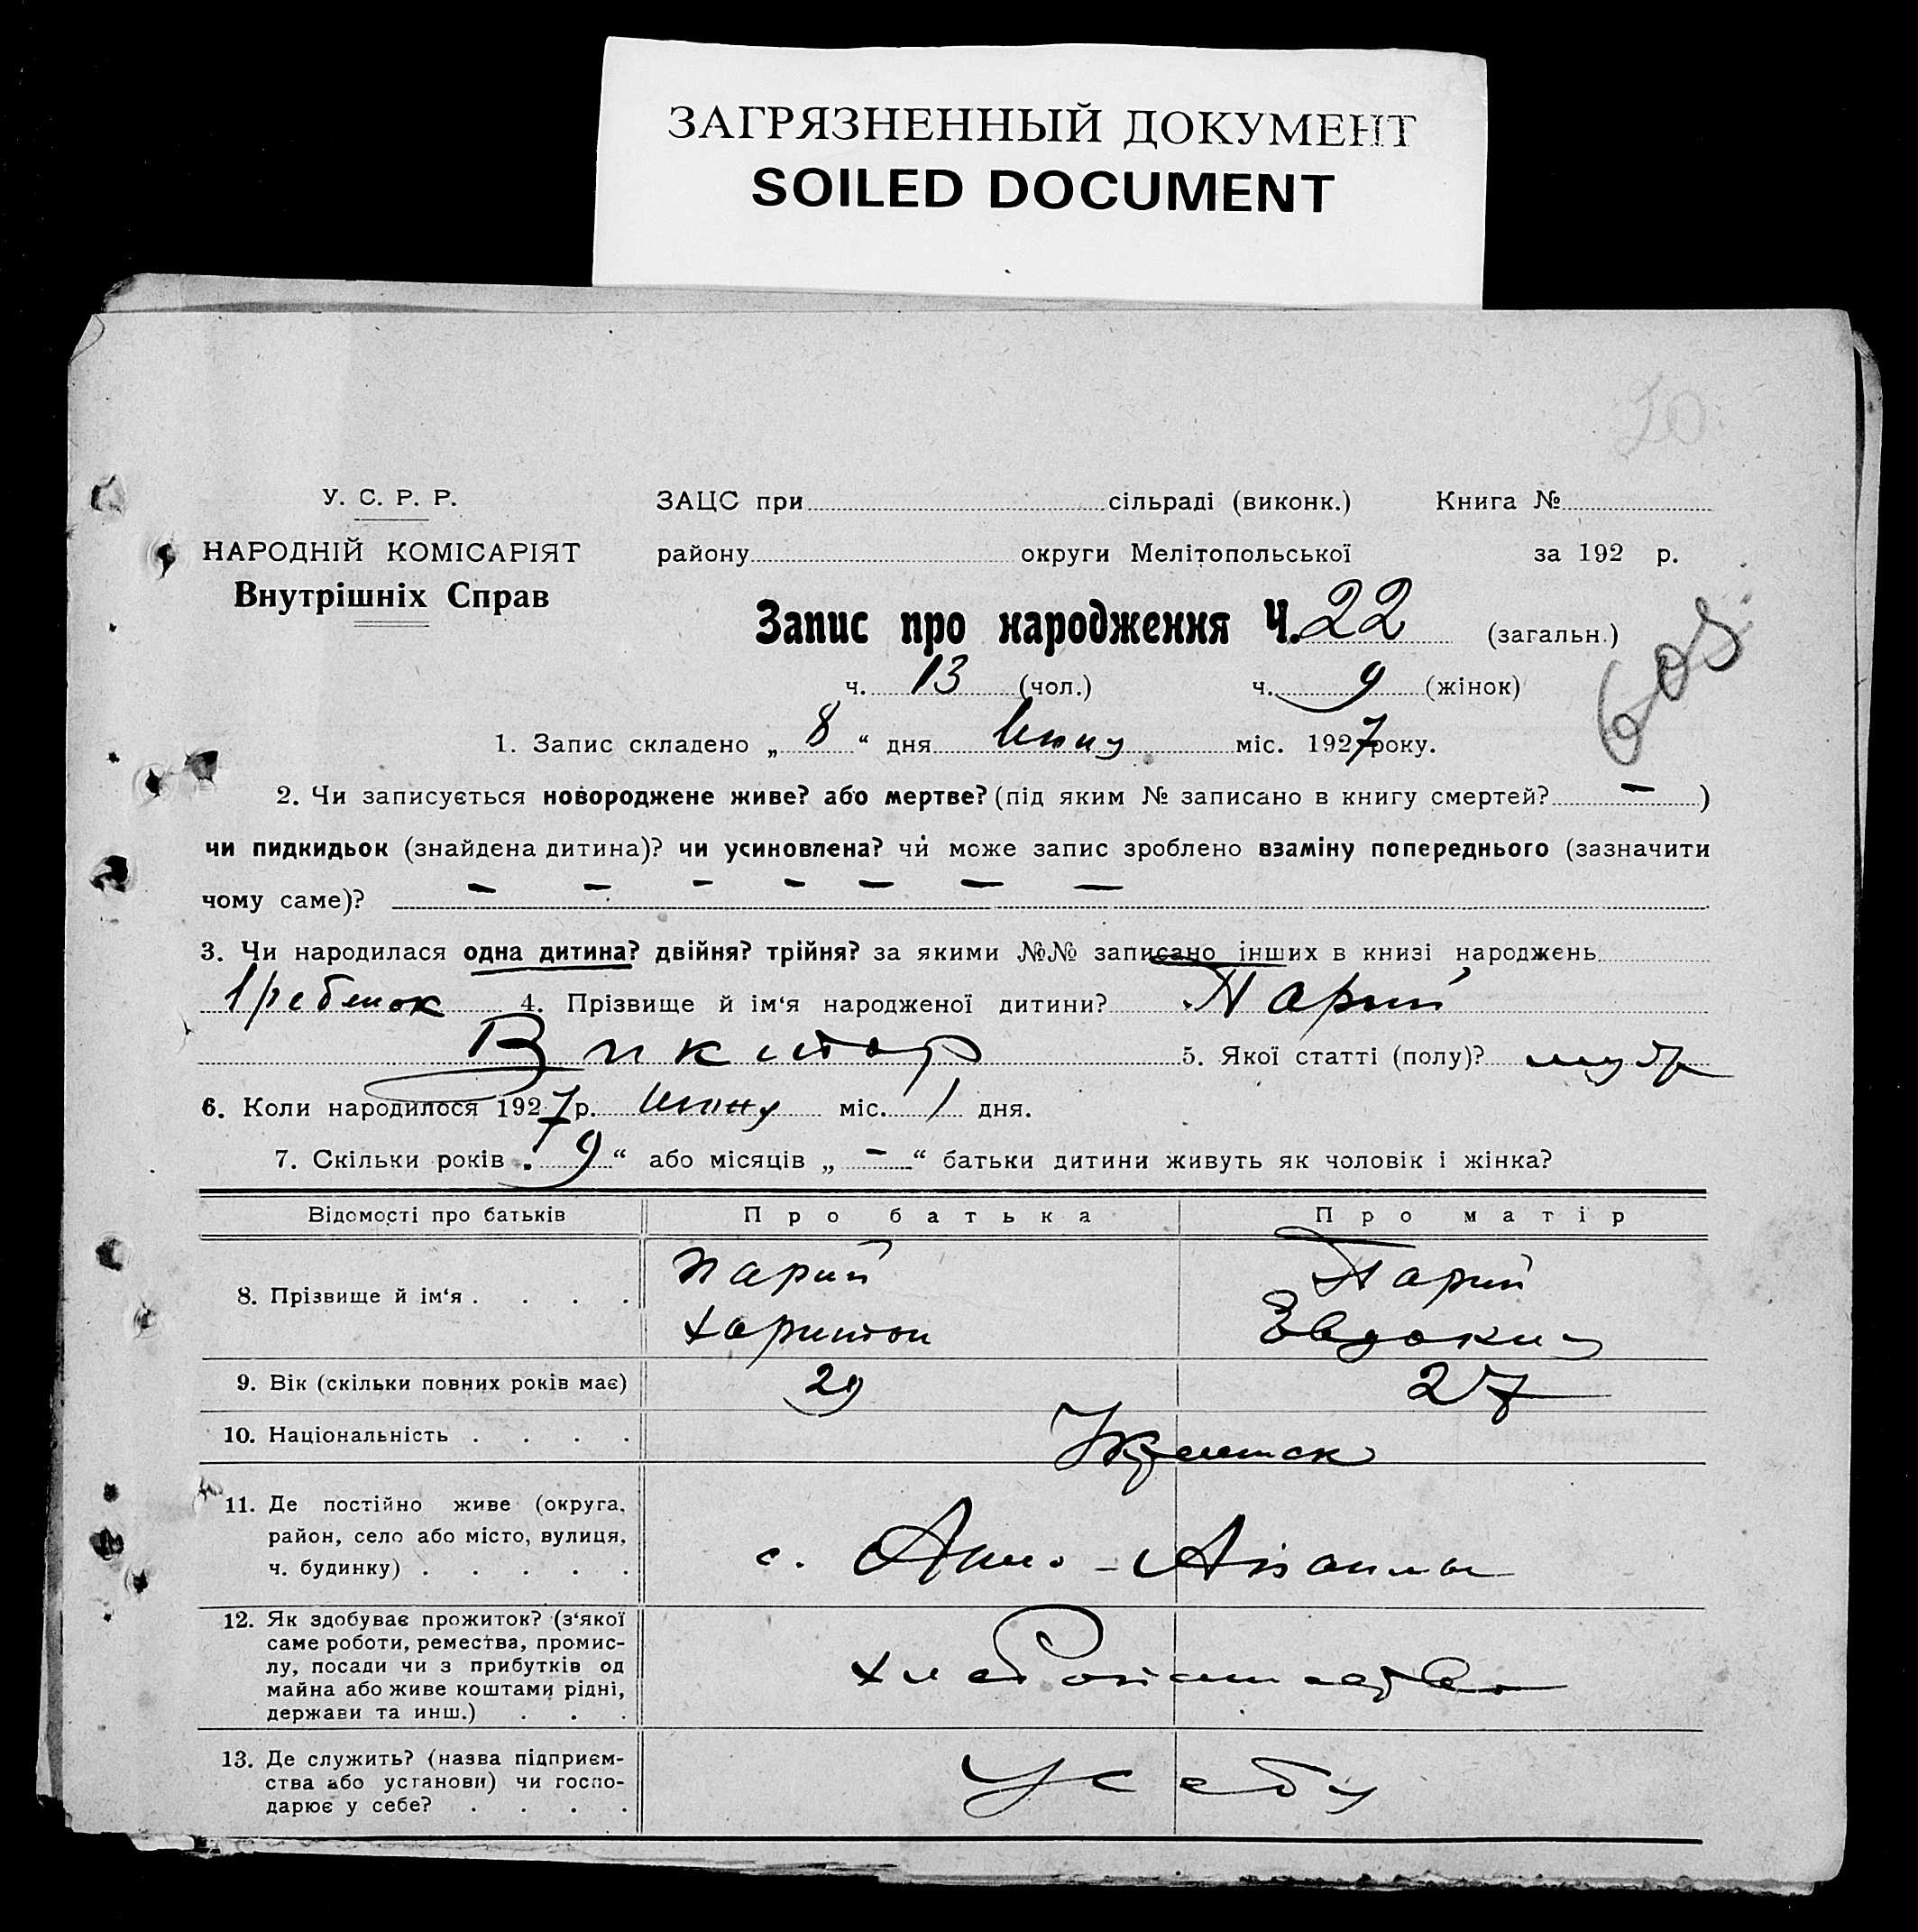 ЗАГРЯЗНЕННЫЙ ДОКУМЕНТ
SOILED DOCUMENT
У. С. Р. Р.
НАРОДНІЙ КОМІСАРІЯТ
Внутрішніх Справ
ЗАЦС при сільраді (виконк.) Книга №
району округи Мелітопольської за 192 р.
Запис про народження Ч. 22 (загальн.)
ч. 13 (чол.) ч. 9 (жінок)
1. Запис складено „ 8 “ дня Июня міс. 1927 року.
2. Чи записується новороджене живе? або мертве? (під яким № записано в книгу смертей? – )
чи пидкидьок (знайдена дитина)? чи усиновлена? чи може запис зроблено взаміну попереднього (зазначити
чому саме)? – – – – – – –
3. Чи народилася одна дитина? двійня? трійня? за якими №№ записано інших в книзі народжень
1 ребенок 4. Прізвище й ім‘я народженої дитини? Парий
Виктор 5. Якої статті (полу)? муж
6. Коли народилося 1927 р. Июня міс. 1 дня.
7. Скільки років „ 9 “ або місяців „ – “ батьки дитини живуть як чоловік і жінка?
Відомості про батьків Про батька Про матір
8. Прізвище й ім‘я . . . . Парий Парий
Харитон Евдокия
9. Вік (скільки повних років має) 29 27
10. Національність . . . .
11. Де постійно живе (округа,
район, село або місто, вулиця,
ч. будинку) . . . . .
с.
12. Як здобуває прожиток? (з‘якої
саме роботи, ремества, промис-
лу, посади чи з прибутків од
майна або живе коштами рідні,
держави та инш.) . . .
хлебопашество
13. Де служить? (назва підприєм-
ства або установи) чи госпо-
дарює у себе? . . . .
У себя